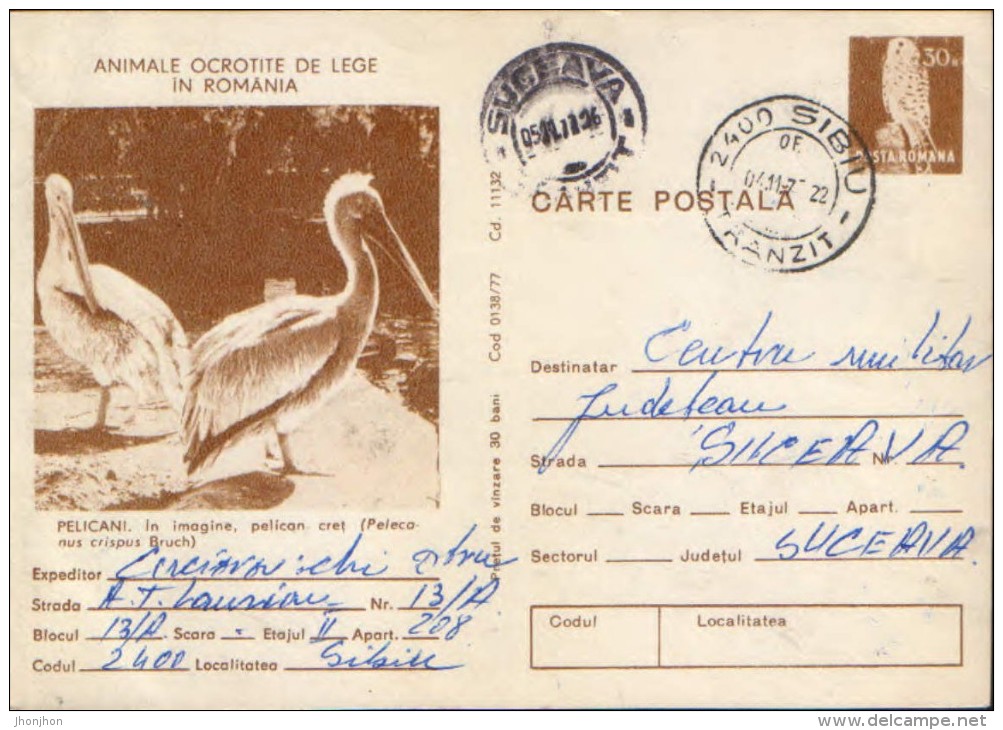 ANIMALE OCROTITE DE LEGE
ÎN ROMÂNIA
PELICANI. În imagine, pelican creț (Peleca-
nus crispus Bruch)
Expeditor
Strada A.T. Laurian Nr. 13/A
Blocul 13/A Scara - Etajul II Apart. 208
Codul 2400 Localitatea Sibiu
Prețul de vînzare 30 bani Cod 0138/77 Cd. 11132
SUCEAVA
2400 SIBIU
OF.
22
TRANZIT
30 B
POSTA ROMANA
CARTE POȘTALĂ
Destinatar Centru militar
Judetean
Strada SUCEAVA Nr.
Blocul Scara Etajul Apart.
Sectorul Județul SUCEAVA
Codul Localitatea
jhonjhon
www.delcampe.net